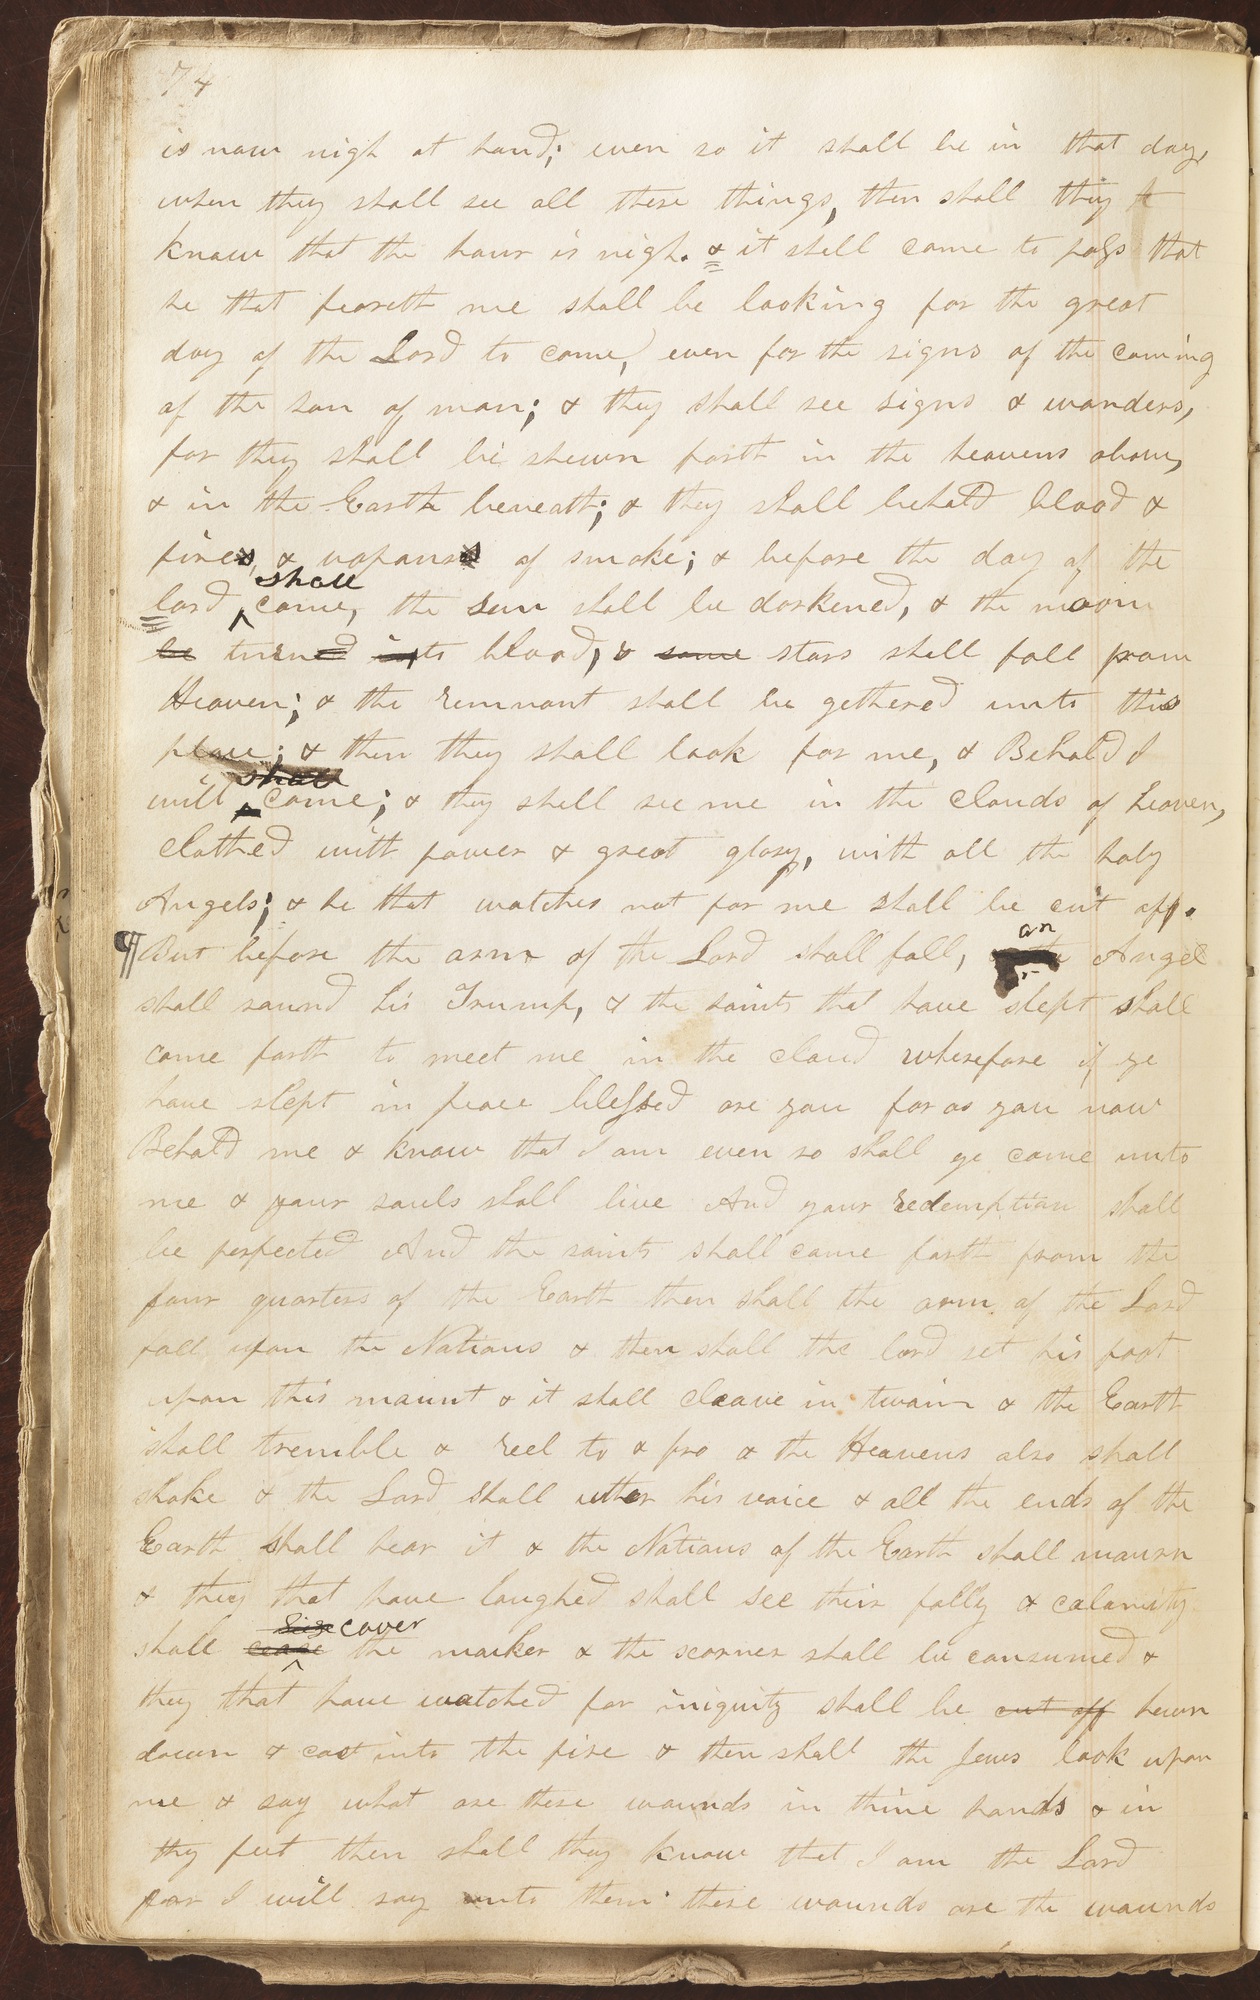 74
is now nigh at hand; even so it shall be in that day,
when they shall see all these things, then shall they
know that the hour is nigh. & it shall come to pass that
he that feareth me shall be looking for the great
day of the Lord to come, even for the signs of the coming
of the son of man; & they shall see signs & wonders,
for they shall be shewn forth in the heavens above,
& in the Earth beneath; & they shall behold blood &
fires, & vapours of smoke; & before the day of the
shall
lord come, the sun shall be darkened, & the moon
be turned into blood, & some stars shall fall from
Heaven; & the remnant shall be gethered unto this
place; & then they shall look for me, & Behold I
shall
will come; & they shall see me in the clouds of heaven,
clothed with power & great glory, with all the holy
Angels; & he that watches not for me shall be cut off.
an
¶ But before the arm of the Lord shall fall, Angel
shall sound his Trump, & the saints that have slept shall
come forth to meet me in the cloud wherefore if ye
have slept in peace blessed are you for as you now
Behold me & know that I am even so shall ye come unto
me & your souls shall live And your redemption shall
be perfected And the saints shall come forth from the
four quarters of the Earth then shall the arm of the Lord
fall upon the Nations & then shall the lord set his foot
upon this mount & it shall cleave in twain & the Earth
shall tremble & reel to & fro & the Heavens also shall
shake & the Lord shall utter his voice & all the ends of the
Earth shall hear it & the Nations of the Earth shall mourn
& they that have laughed shall see their folly & calamity
cover
shall cease the mocker & the scorner shall be consumed &
they that have watched for iniquity shall be cut off hewn
down & cast into the fire & then shall the Jews look upon
me & say what are these wounds in thine hands & in
thy feet then shall they know that I am the Lord
for I will say unto them these wounds are the wounds